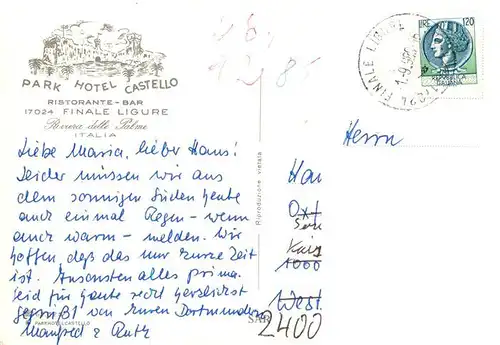 PARK HOTEL CASTELLO
RISTORANTE - BAR
17024 FINALE LIGURE
Riviera delle Palme
ITALIA
Liebe Maria, lieber Hans!
Leider müssen wir aus
dem sonnigen Süden heute
auch einmal Regen – wenn
auch warm – melden. Wir
hoffen, daß das nur kurze Zeit
ist. Ansonsten alles prima.
Seid für heute recht herzlichst
gegrüßt von Euren Dortmundern
Manfred & Ruth
PARKHOTELCASTELLO
Riproduzione vietata
SAR
LIRE 120
FINALE LIGURE
Herrn
Han
Oxt
1000
West
2400